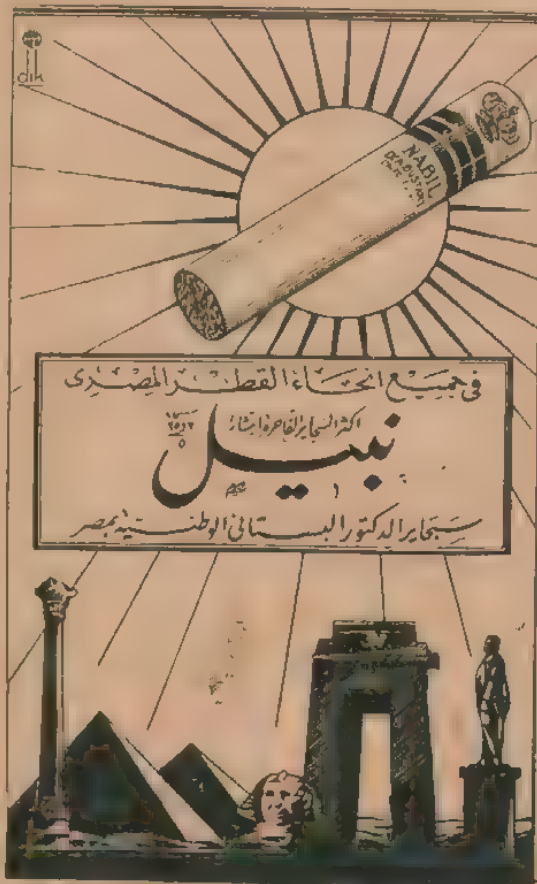 dik
NABIL
DR A. BUSTANY
فى جميع انحاء القطر المصرى
اكثر السجاير الفاخرة انتشارا
نبيل
سجاير الدكتور البستانى الوطنية بمصر